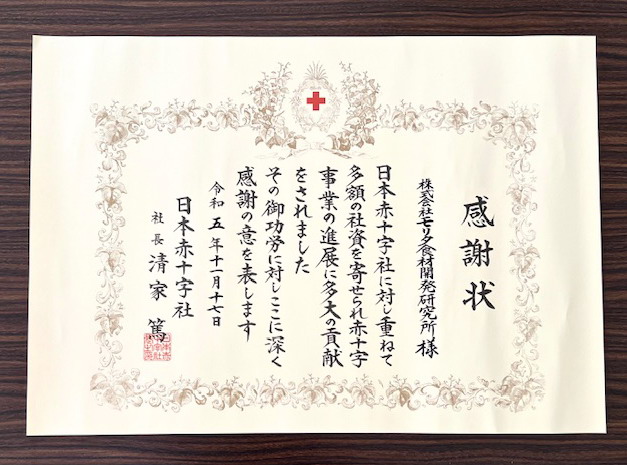 感謝状
株式会社モリタ食材開発研究所様
日本赤十字社に対し重ねて
多額の社資を寄せられ赤十字
事業の進展に多大の貢献
をされました
その御功労に対しここに深く
感謝の意を表します
令和五年十一月十七日
日本赤十字社
社長 清家篤